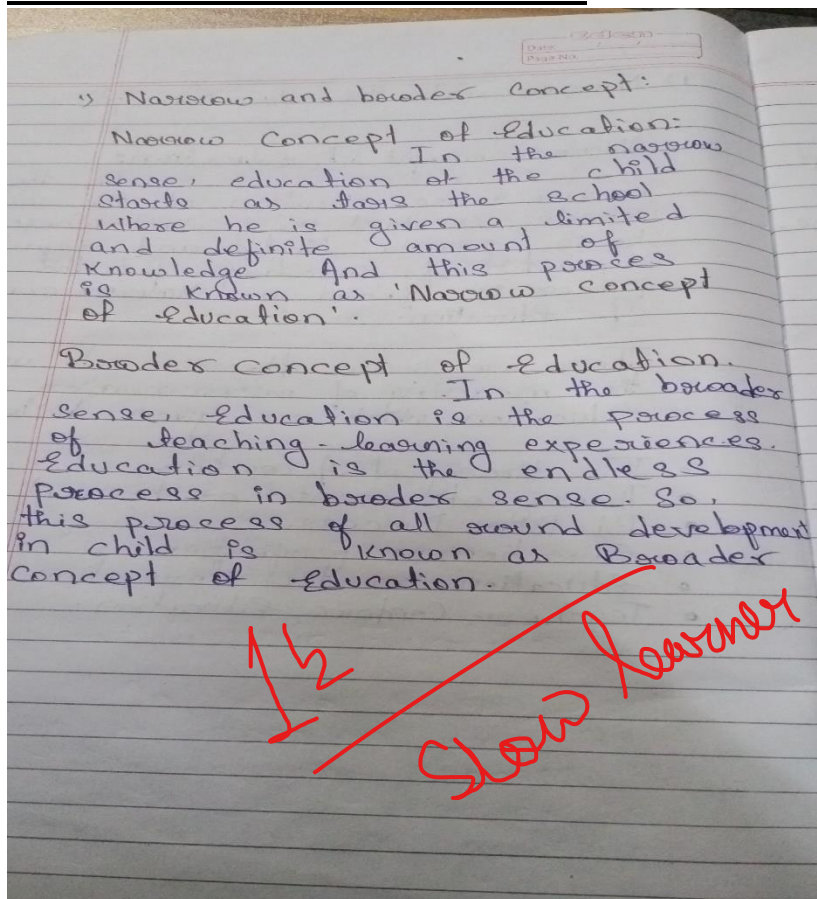 Date
Page No.
1) Narrow and broder Concept:
Narrow Concept of Education:
In the narrow
sense, education of the child
starts as the school
where he is given a limited
and definite amount of
knowledge And this proces
is known as 'Narrow concept
of Education'.
Broder concept of Education.
In the broader
sense, Education is the process
of teaching-learning experiences.
Education is the endless
process in broder sense. So,
this process of all round development
in child is known as Broader
concept of Education.
Slow learner